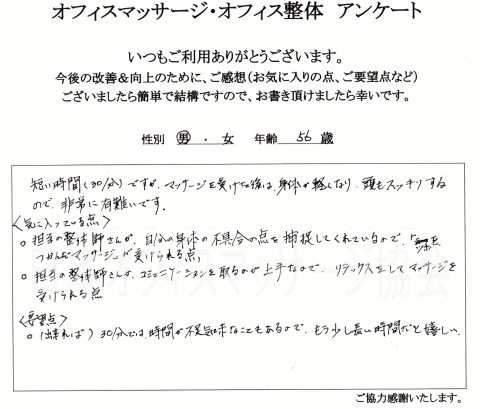 オフィスマッサージ・オフィス整体 アンケート
いつもご利用ありがとうございます。
今後の改善&向上のために、ご感想(お気に入りの点、ご要望点など)
ございましたら簡単で結構ですので、お書き頂けましたら幸いです。
性別 男 ・ 女 年齢 56 歳
短い時間(30分)ですが、マッサージを受けた後は、身体が軽くなり、頭もスッキリする
ので、非常に有難いです。
<気に入っている点>
○ 担当の整体師さんが、自分の身体の不具合の点を捕捉してくれているので、「
つかんだマッサージ」が受けられる点
○ 担当の整体師さんが、コミュニケーションを取るのが上手なので、リラックスをしてマッサージを
受けられる点
<要望点>
○ (出来れば) 30分では、時間が不足気味なこともあるので、もう少し長い時間だと嬉しい。
ご協力感謝いたします。